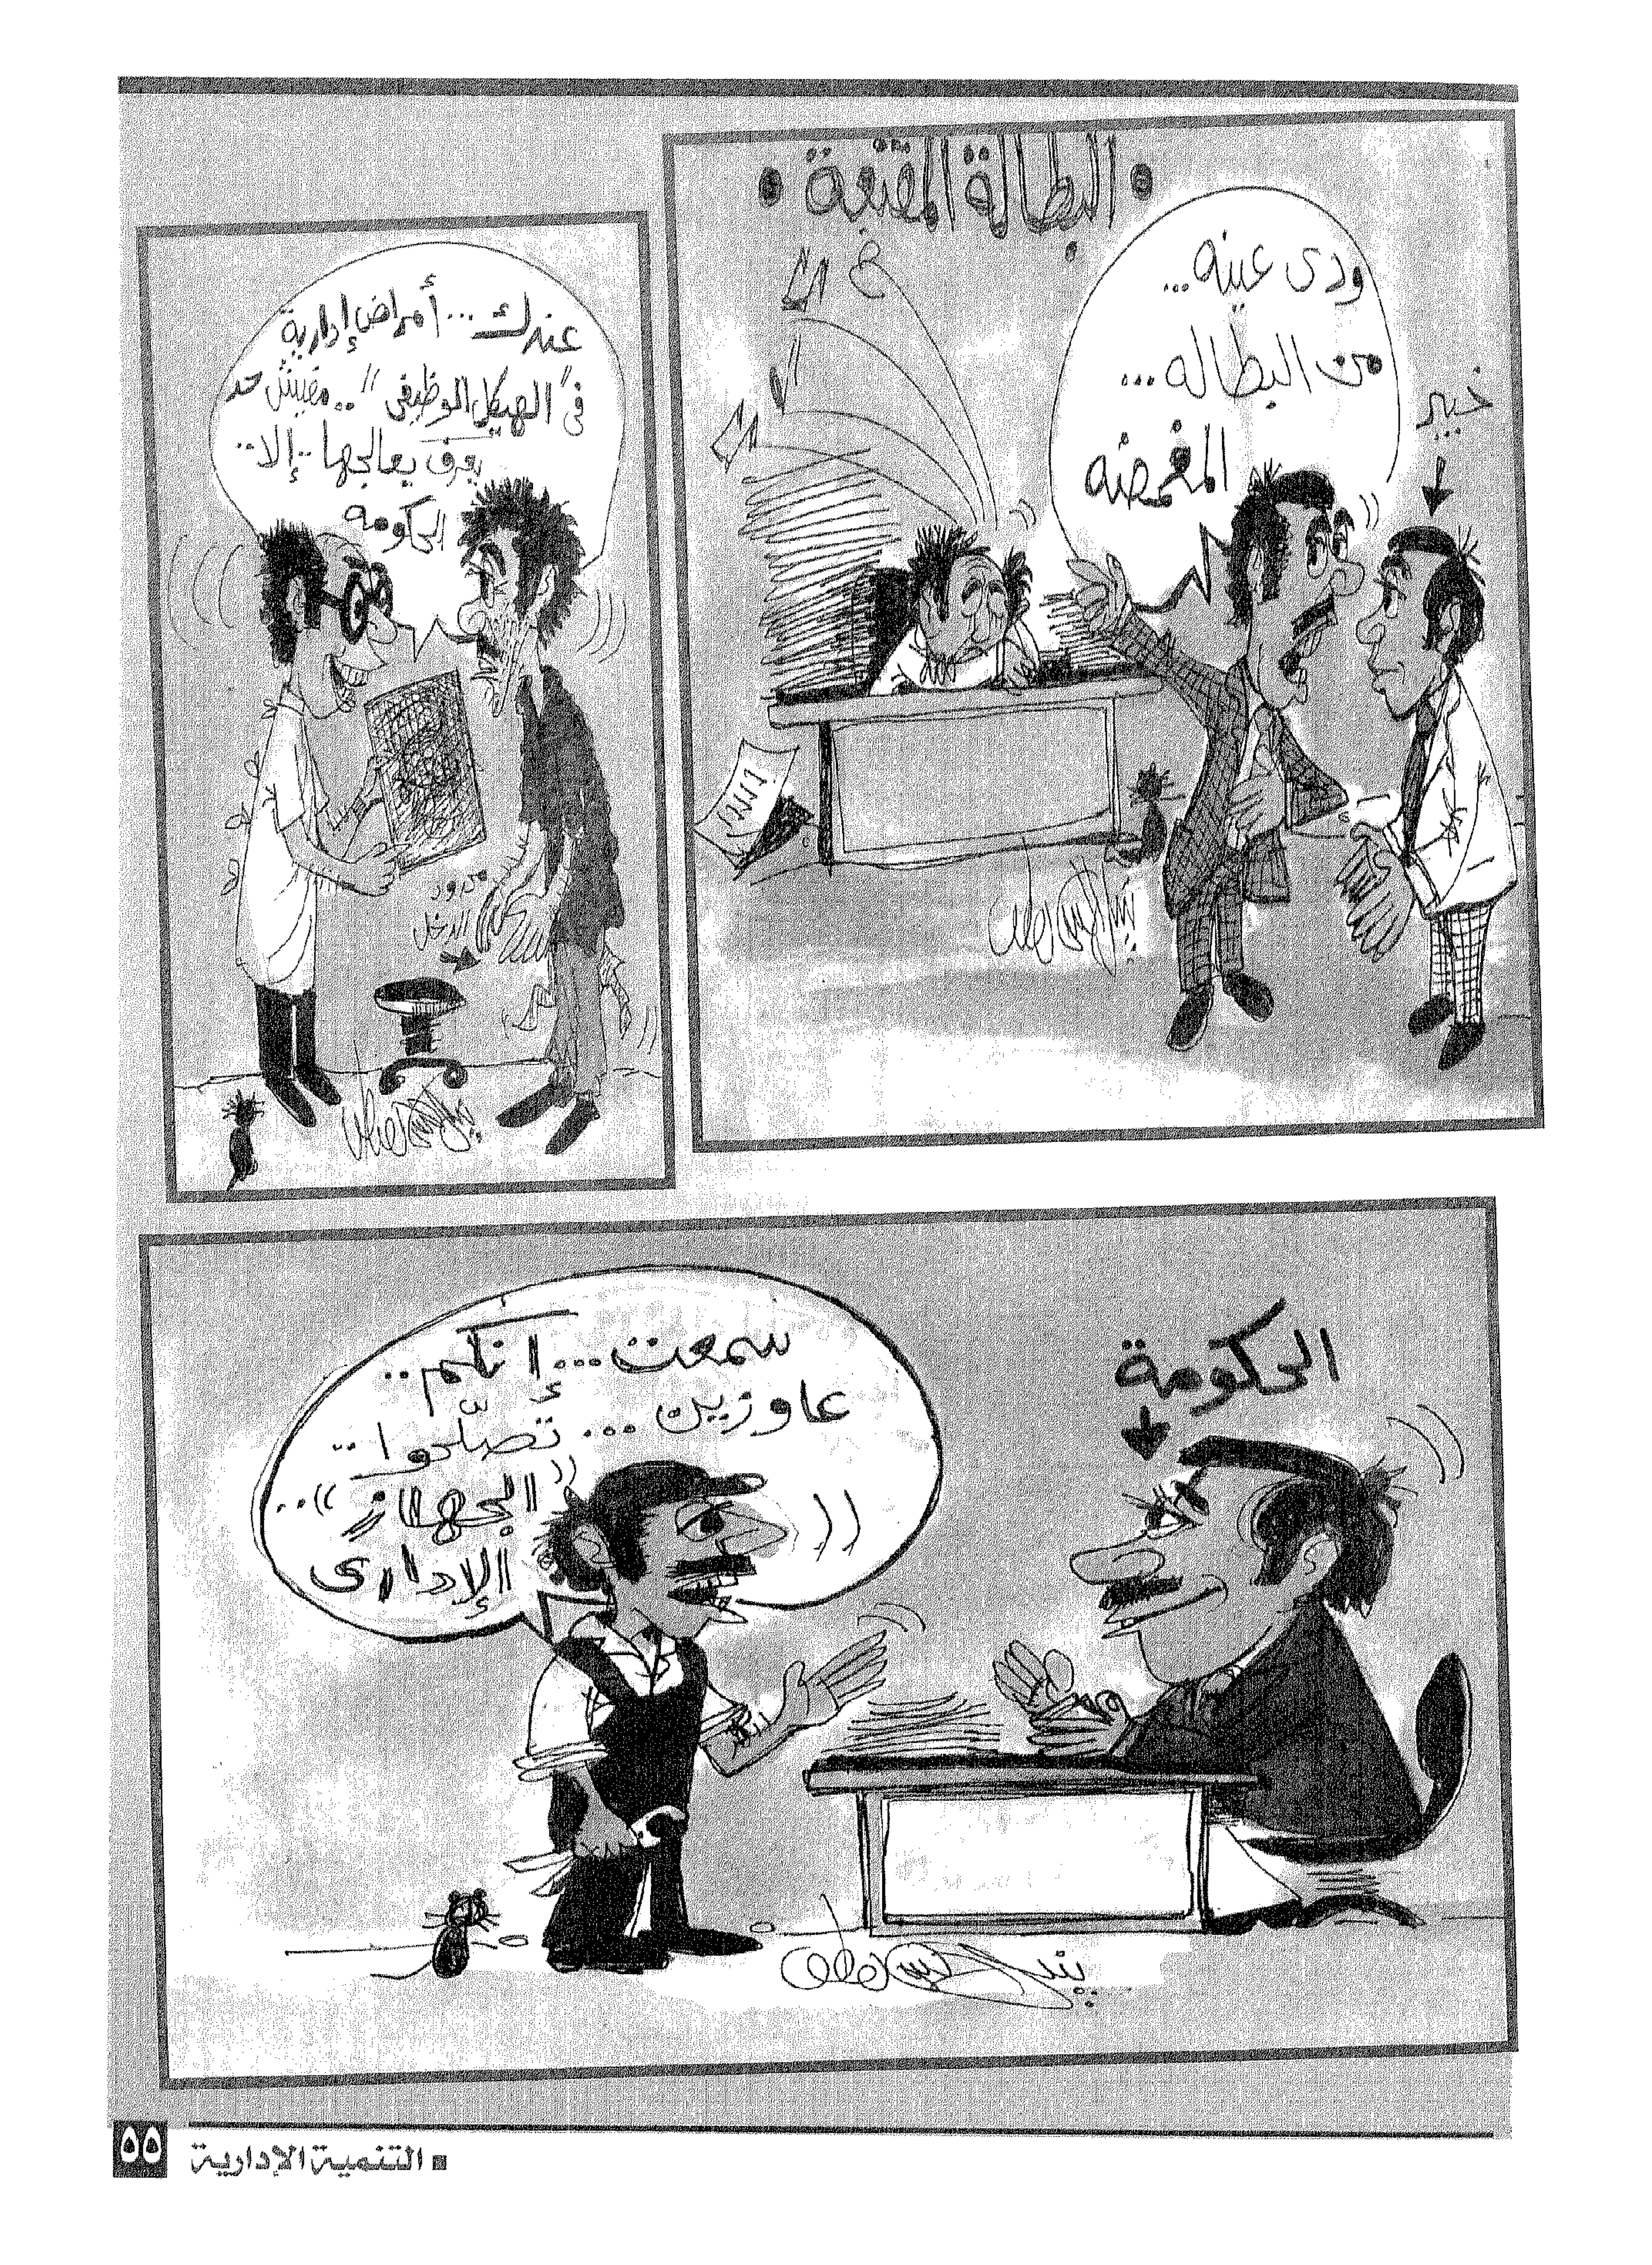 البطالة المقنعة
ودى عينه...
من البطاله...
المغمضه
خبير
عندك... أمراض إدارية
فى "الهيكل الوظيفى".. مفيش حد
يعرف يعالجها.. إلا..
الحكومه
محدود
الدخل
الحكومة
سمعت... إنكم..
عاوزين... تصلّحوا..
"الجهاز"..
الإدارى
التنمية الإدارية
٥٥